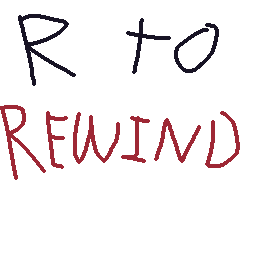 R TO
REWIND